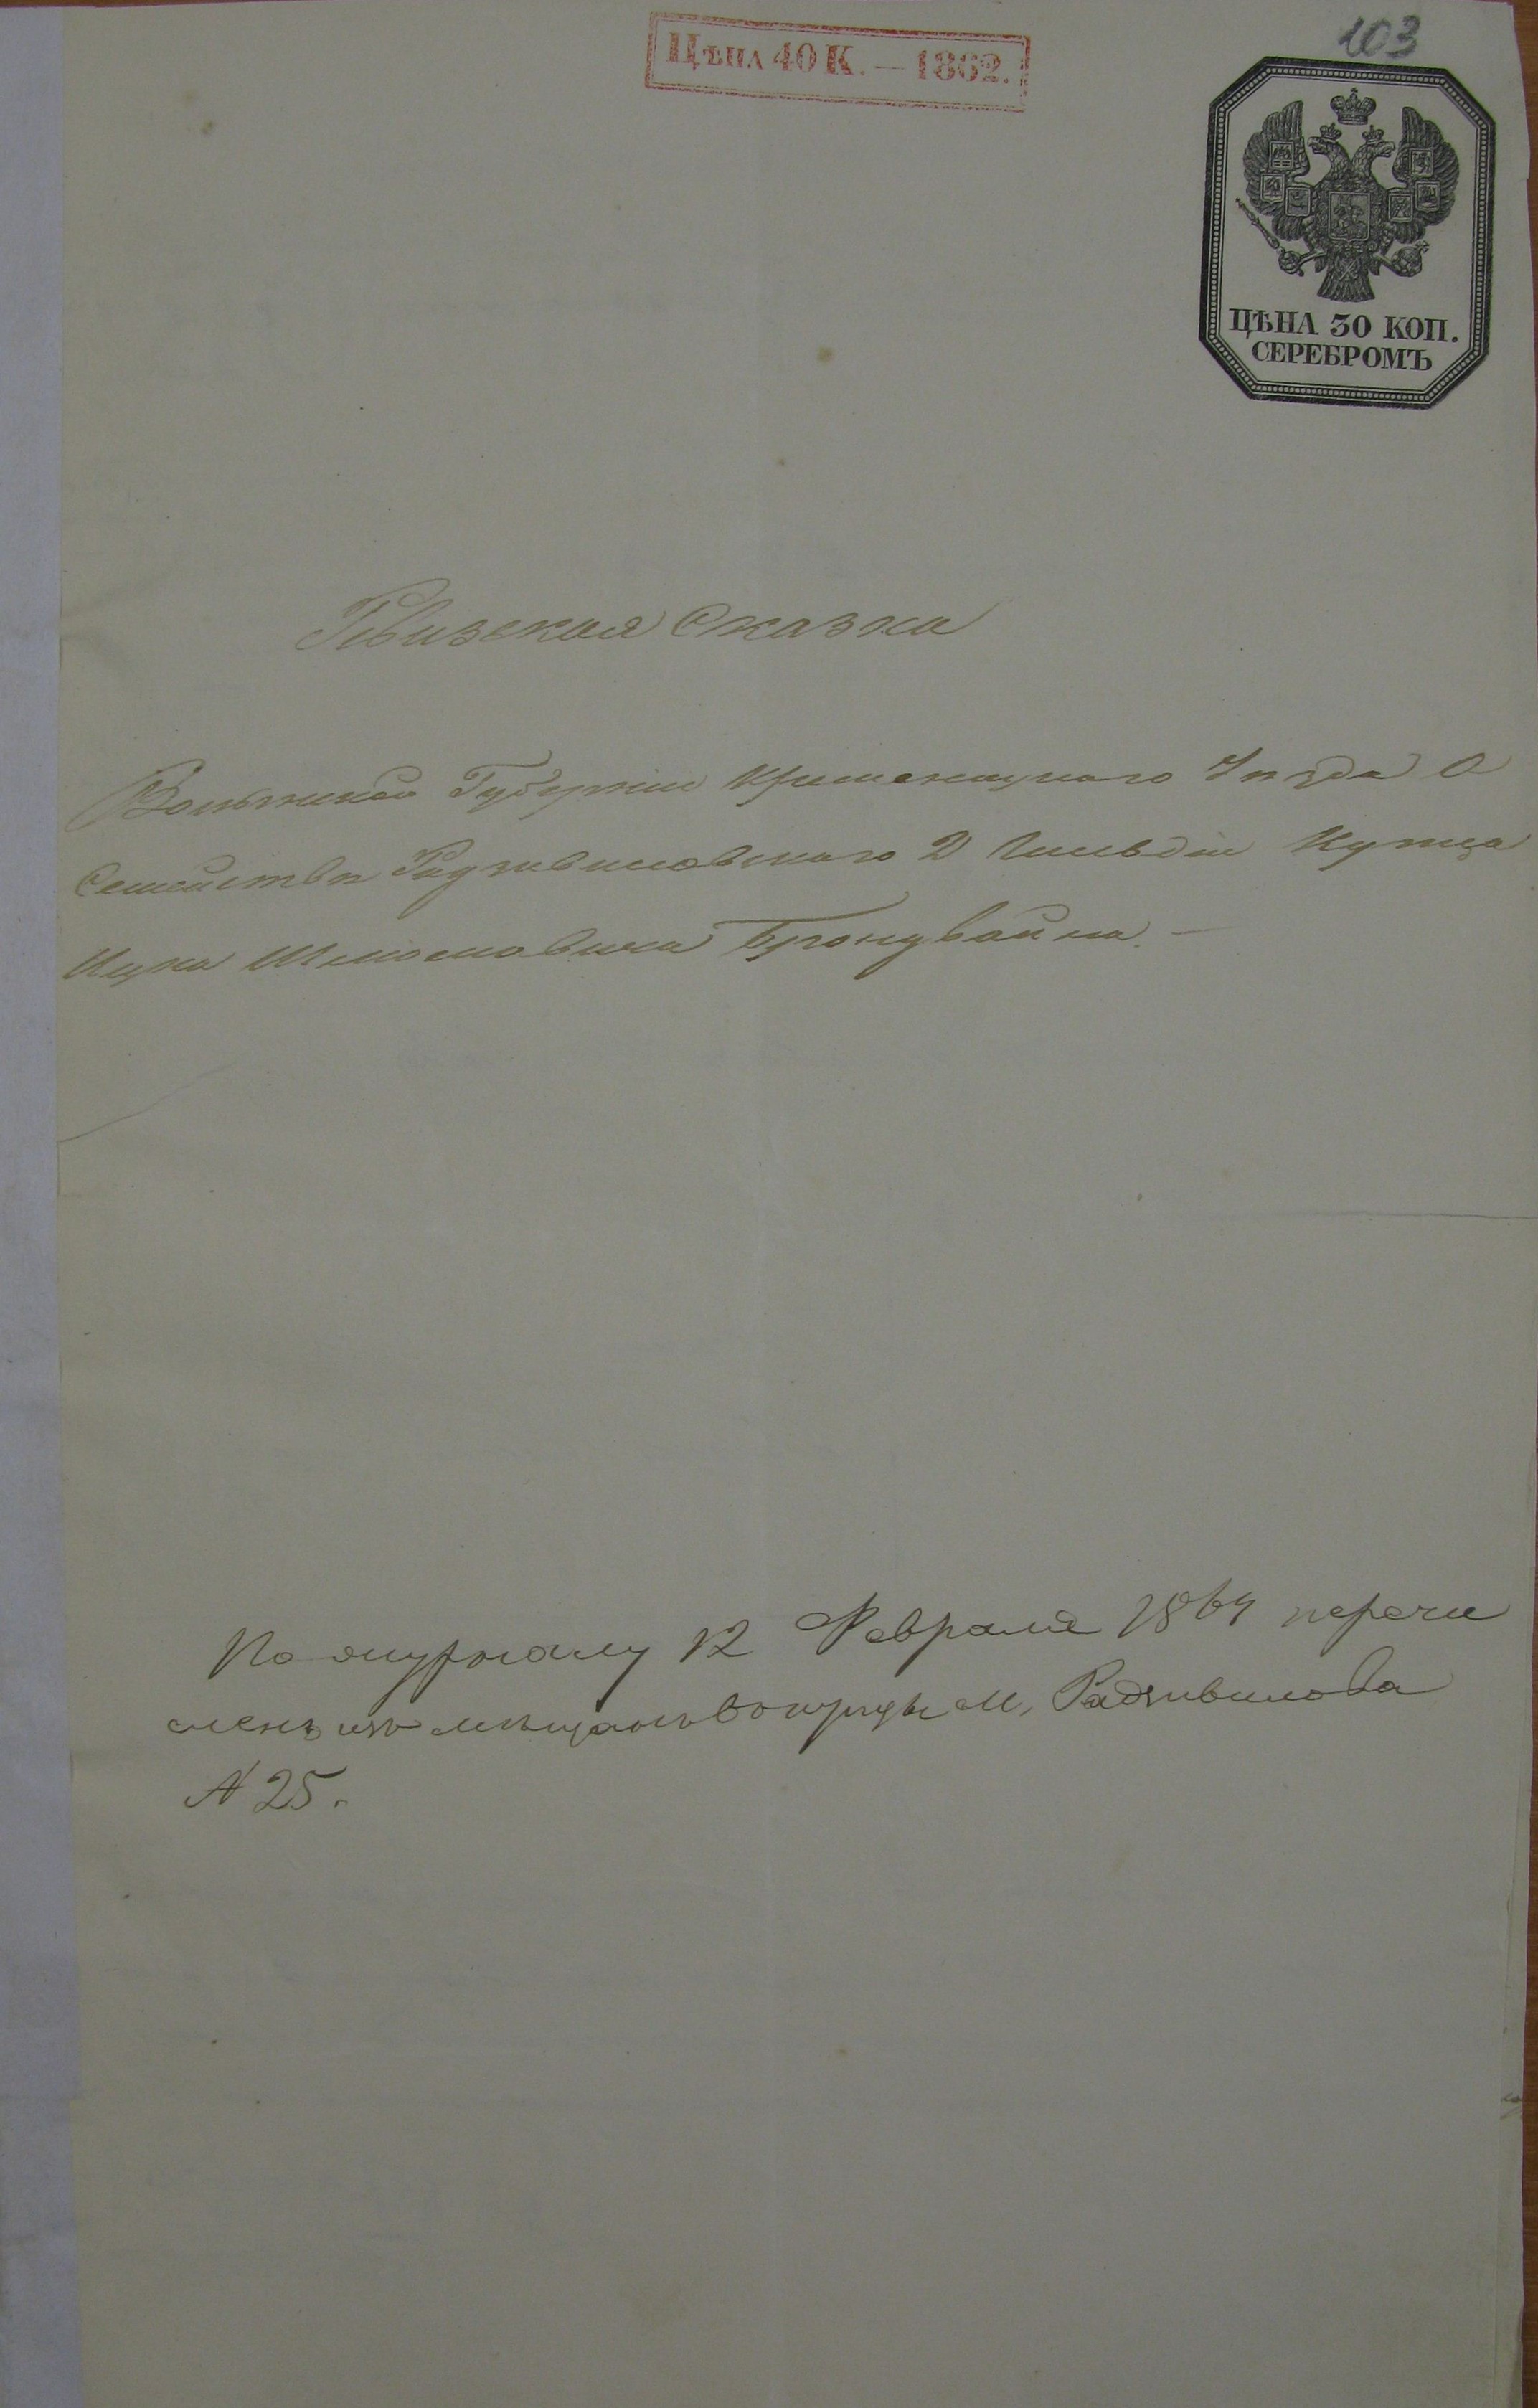 103
Цѣна 40 К. — 1862.
ЦѢНА 30 КОП.
СЕРЕБРОМЪ
Ревизская Сказка
Волынской Губерніи Кременецкаго Уѣзда О
Семействѣ Радзивиловскаго 2 Гильдіи Купца
Ицка Шлiомовича
По журналу 12 Февраля 1864 перечи
сленъ изъ мѣщанъ въ купцы м. Радзивилова
N 25.